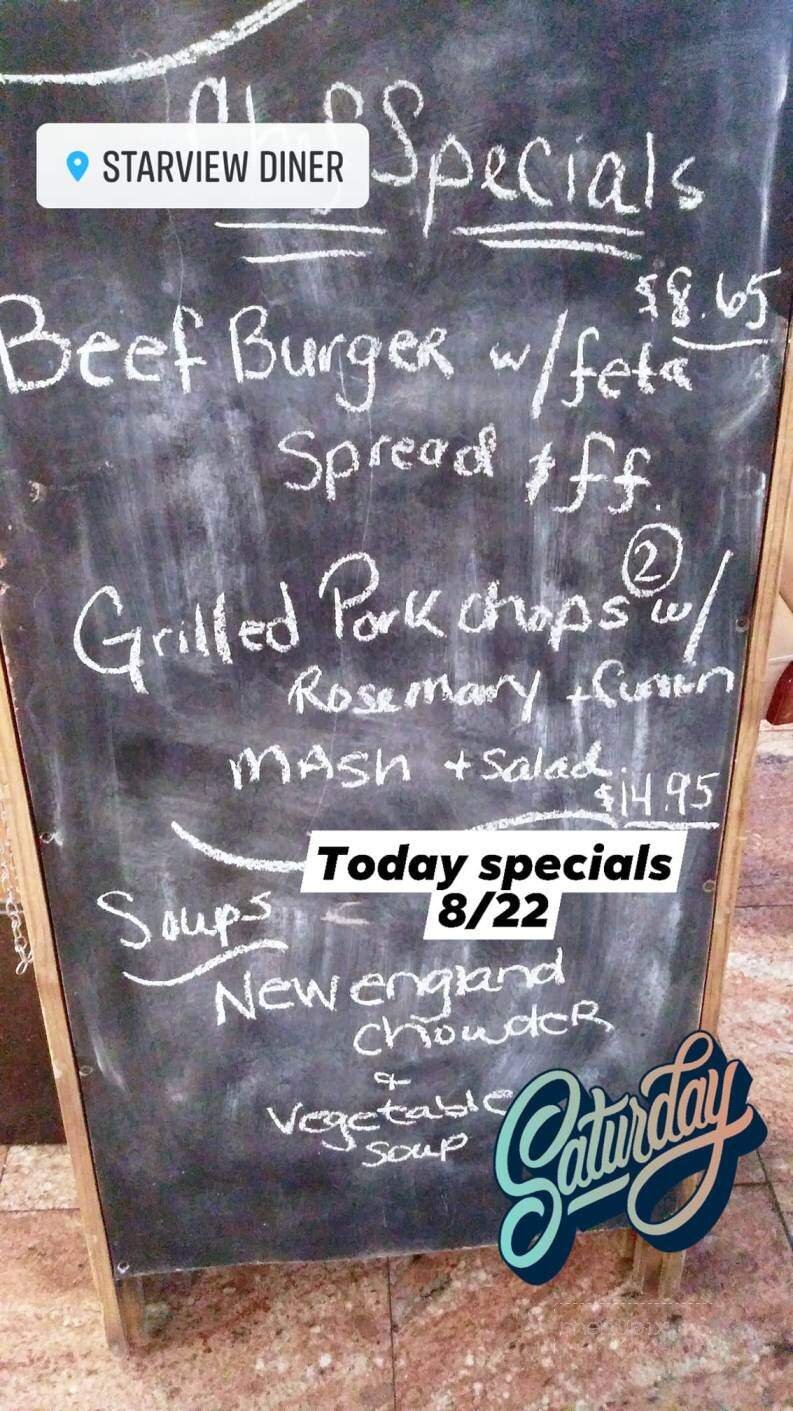 Specials
STARVIEW DINER
$8.65
Beef Burger w/feta
Spread + ff.
2
Grilled Pork chops w/
Rosemary + Cumin
MASh + Salad.
$14.95
Today specials
8/22
Soups
New england
chowdeR
&
Vegetable
Soup
Saturday